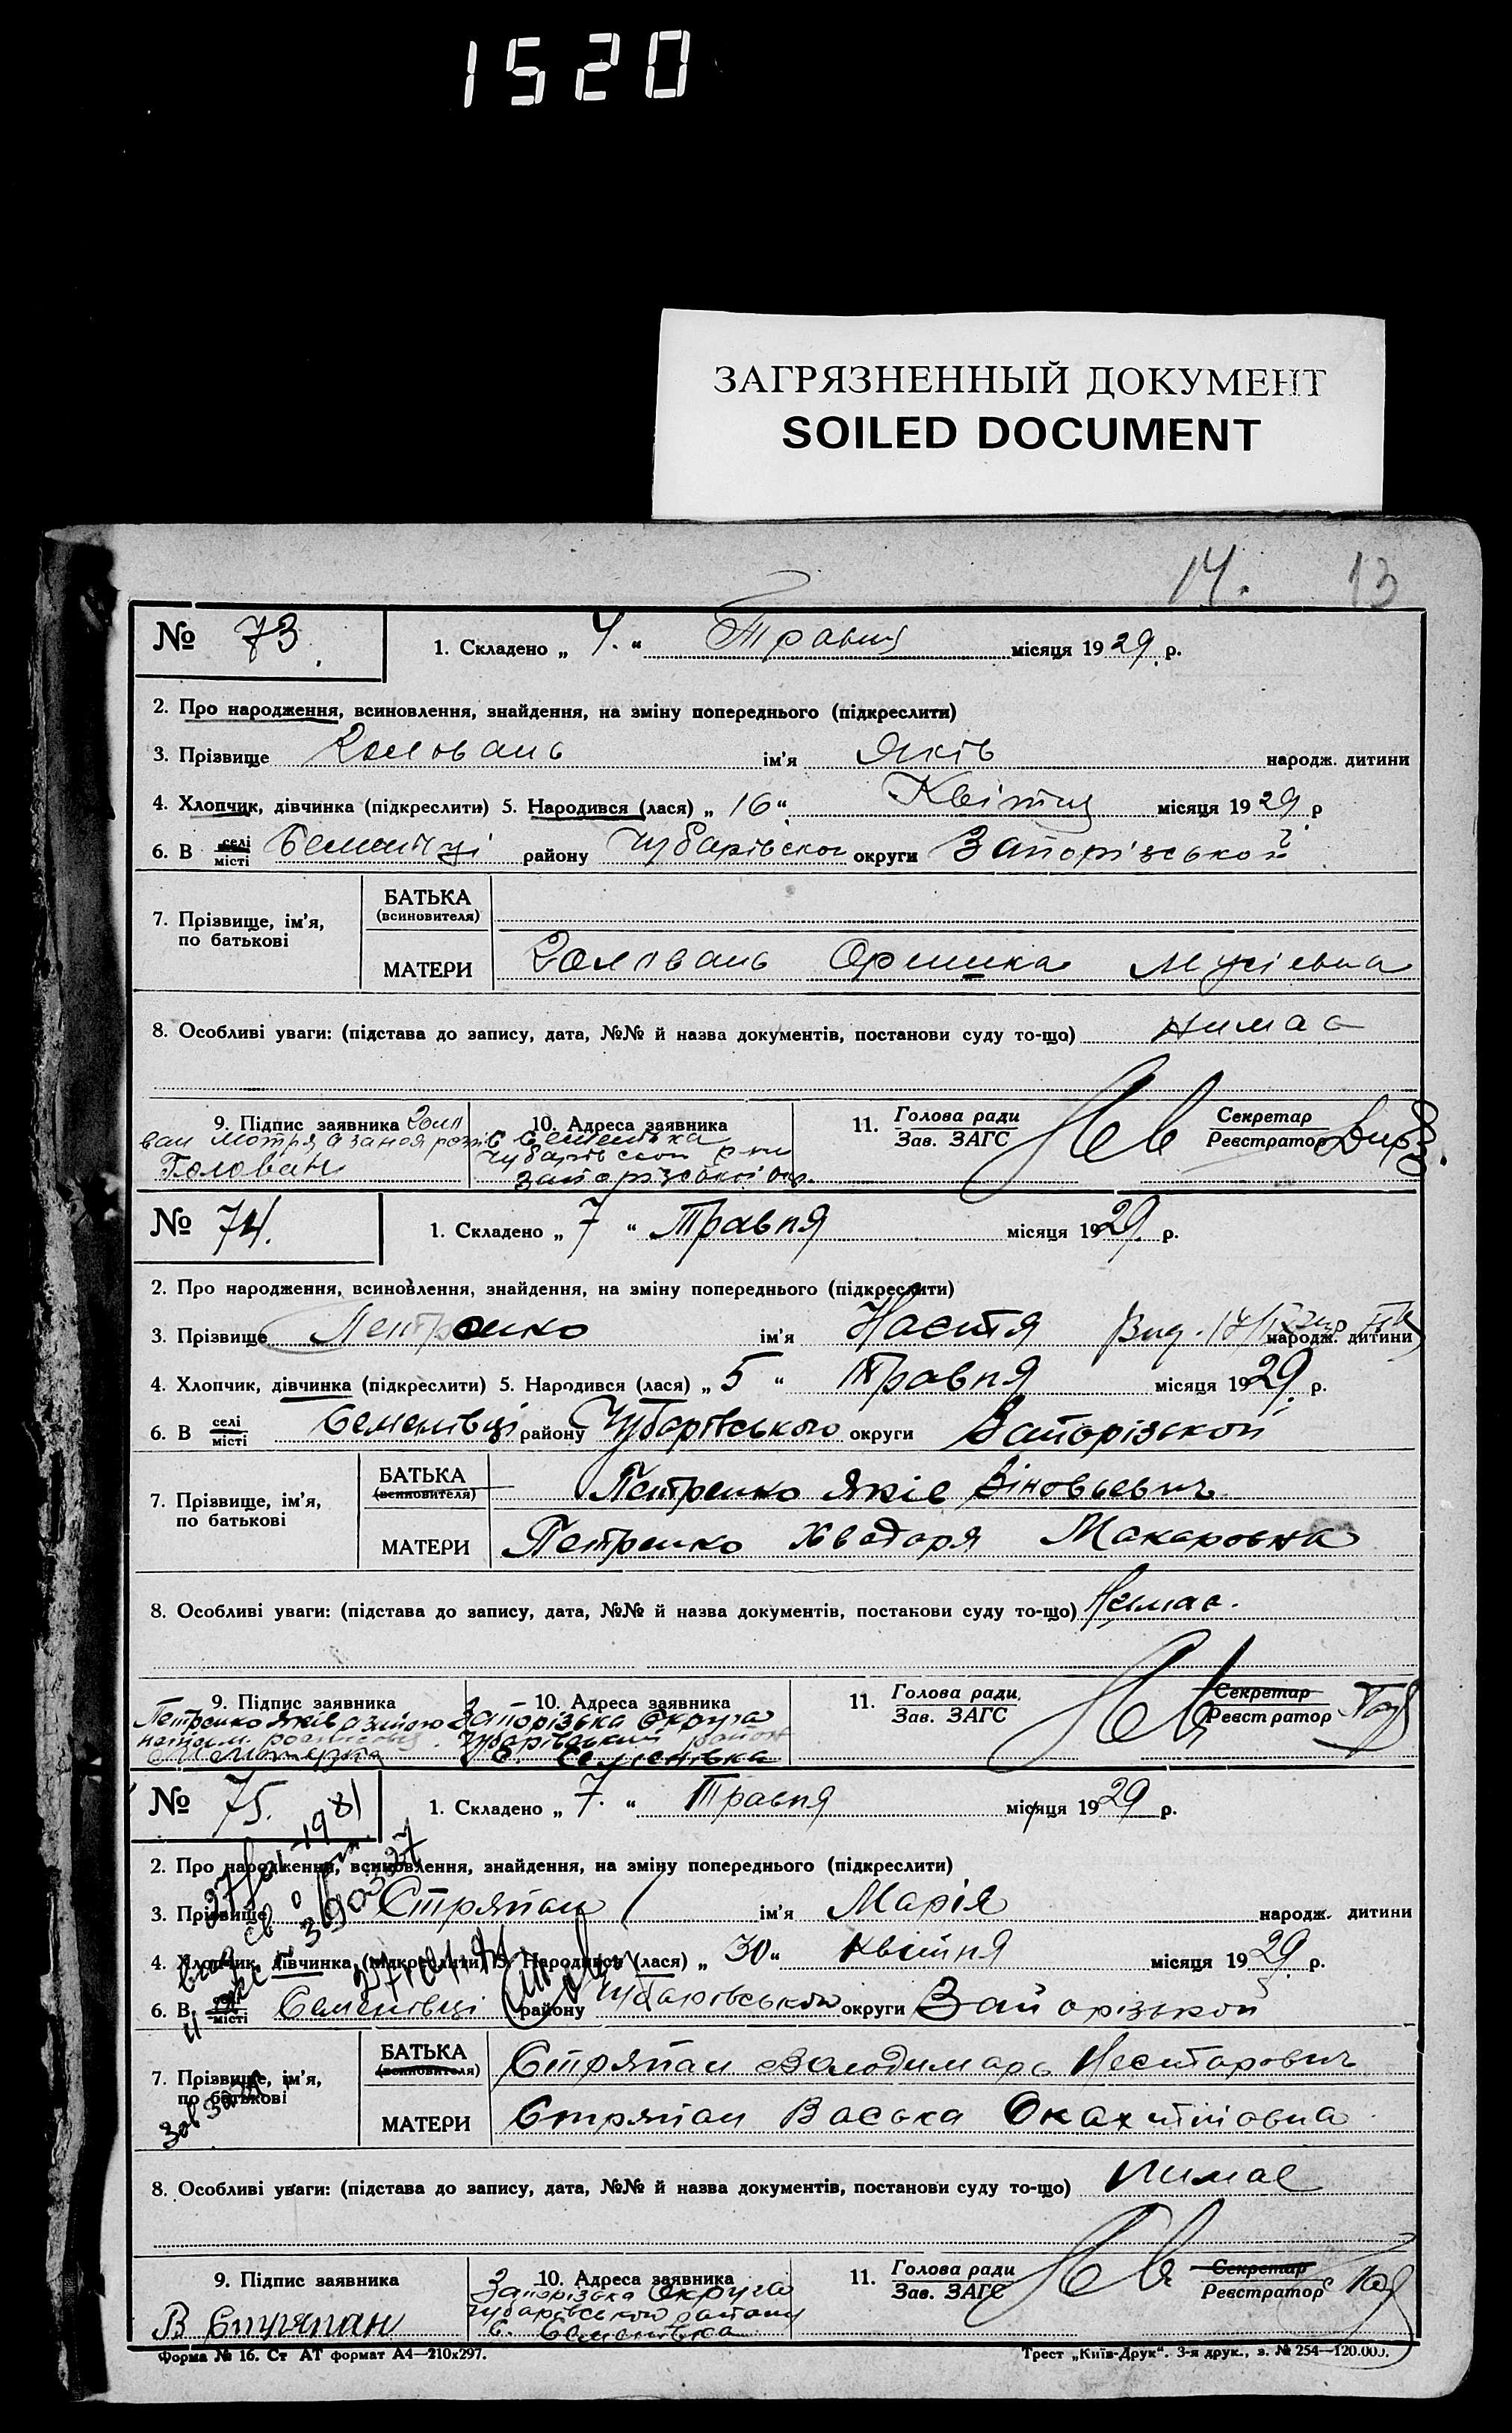 1520
ЗАГРЯЗНЕННЫЙ ДОКУМЕНТ
SOILED DOCUMENT
14. 13
№ 73. 1. Складено „ 4. “ Травня місяця 1929 р.
2. Про народження, всиновлення, знайдення, на зміну попереднього (підкреслити)
3. Прізвище Головань ім'я Яків народж. дитини
4. Хлопчик, дівчинка (підкреслити) 5. Народився (лася) „ 16 “ Квітня місяця 1929 р
6. В селі місті району Чубарівског округи Запорізської
7. Прізвище, ім'я, по батькові
БАТЬКА (всиновителя)
МАТЕРИ Головань Оришка Мусіевна
8. Особливі уваги: (підстава до запису, дата, №№ й назва документів, постанови суду то-що) нимає
9. Підпис заявника 10. Адреса заявника 11. Голова ради Зав. ЗАГС Секретар Реєстратор
Головач Мотря
Голован
с Семенівка
Запорізської окр.
№ 74. 1. Складено „ 7 “ Травня місяця 1929 р.
2. Про народження, всиновлення, знайдення, на зміну попереднього (підкреслити)
3. Прізвище Петренко ім'я Настя народж. дитини
4. Хлопчик, дівчинка (підкреслити) 5. Народився (лася) „ 5 “ Травня місяця 1929 р.
6. В селі місті Семенівці району Чубарівського округи Запорізской
7. Прізвище, ім'я, по батькові
БАТЬКА (всиновителя) Петренко Яків Зіновьевич
МАТЕРИ Петренко Хведоря Макаровна
8. Особливі уваги: (підстава до запису, дата, №№ й назва документів, постанови суду то-що) Немає.
9. Підпис заявника 10. Адреса заявника 11. Голова ради Зав. ЗАГС Секретар Реєстратор
Петренко Яків
Запорізька Округа
Чубарівський район
с. Семенівка
№ 75. 1. Складено „ 7. “ Травня місяця 1929 р.
2. Про народження, всиновлення, знайдення, на зміну попереднього (підкреслити)
3. Прізвище Стряпан ім'я Марія народж. дитини
4. Хлопчик, дівчинка (підкреслити) 5. Народився (лася) „ 30 “ квітня місяця 1929 р.
6. В селі місті Семенівці району Чубарівськой округи Запорізской
7. Прізвище, ім'я, по батькові
БАТЬКА (всиновителя) Стряпан Володимарь Несторович
МАТЕРИ Стряпан Васька
8. Особливі уваги: (підстава до запису, дата, №№ й назва документів, постанови суду то-що) Нимає
9. Підпис заявника 10. Адреса заявника 11. Голова ради Зав. ЗАГС Секретар Реєстратор
В Стряпан
Запорізька Округа
Чубарівськой району
с. Семенівка
Форма № 16. Ст АТ формат А4—210х297. Трест „Київ-Друк“. 3-я друк., з. № 254—120.000.